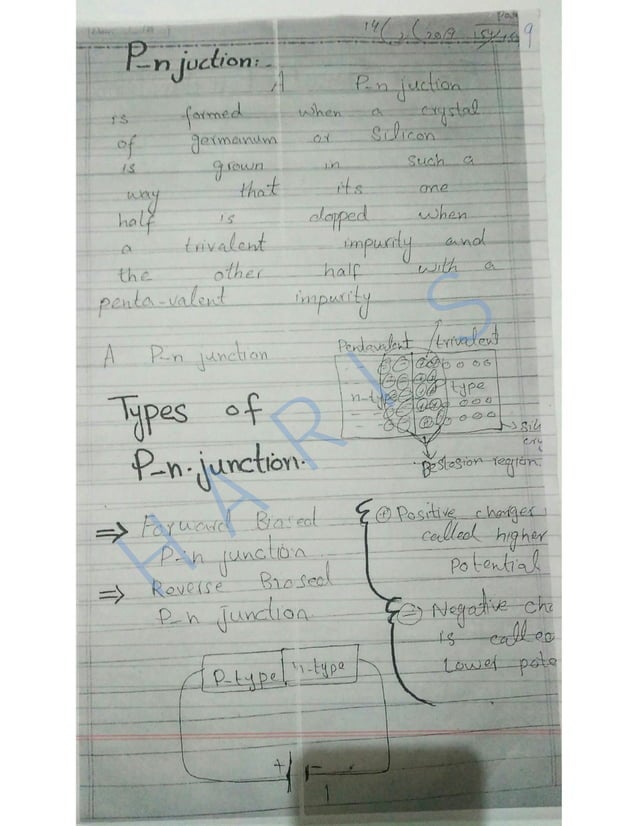 P-n juction:-
A P-n juction
is formed when a crystal
of germanum or Silicon
is grown in such a
way that its one
half is dopped when
a trivalent impurity and
the other half with a
penta-valent impurity
A P-n junction
Pentavalent trivalent
n-type type
region
Types of
P-n junction.
⇒ Forward Biased
P-n junction
⇒ Reverse Biased
P-n junction
⊕ Positive charger
called higher
Potential
⊖ Negative
is called
Lower
P-type n-type
+ -
HARIS